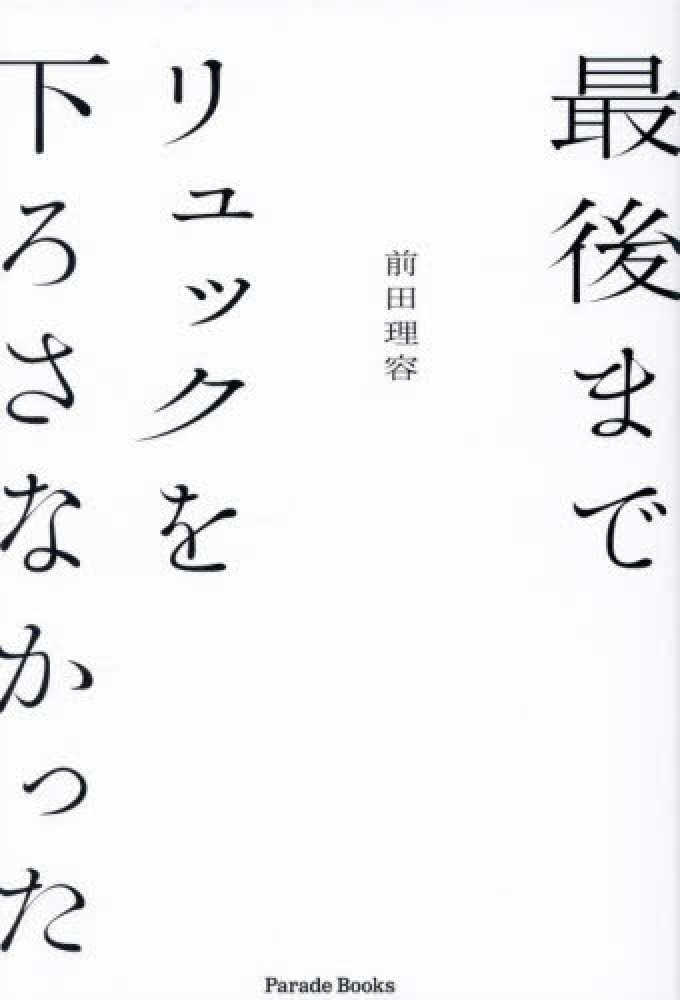 最後まで
リュックを
下ろさなかった
前田理容
Parade Books